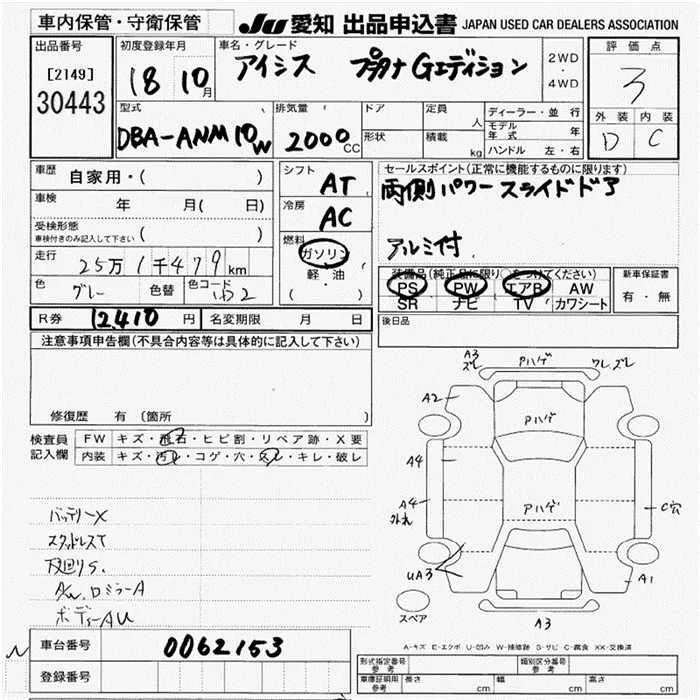 車内保管・守衛保管
JU 愛知 出品申込書 JAPAN USED CAR DEALERS ASSOCIATION
出品番号
[2149]
30443
初度登録年月
18 10月
車名・グレード
アイシス プラタナ Gエディション
2WD
・
4WD
評価点
3
外装 内装
D C
型式
DBA-ANM10W
排気量
2000 CC
ドア
形状
定員 人
積載 kg
ディーラー・並行
モデル年式 年
ハンドル 左・右
車歴
自家用・( )
車検
年 月( 日)
受検形態
車検付きのみ記入して下さい ( )
走行
25万1千479km
色
グレー
色替
色コード
シフト
AT
冷房
AC
燃料
ガソリン
軽・油
( )
セールスポイント(正常に機能するものに限ります)
両側パワースライドドア
アルミ付
装備品(純正品に限り○をつけてください)
PS PW エアB AW
SR ナビ TV カワシート
新車保証書
有・無
R券 12,410 円
名変期限 月 日
後日品
注意事項申告欄(不具合内容等は具体的に記入して下さい)
修復歴 有 (箇所
検査員記入欄
FW キズ・飛石・ヒビ割・リペア跡・X要
内装 キズ・汚レ・コゲ・穴・スレ・キレ・破レ
バッテリーX
スタッドレスT
下廻りS.
A/W. ロミラーA
ボディーAU
A3
ズレ
Aハゲ
ワレ、ズレ
A2
Aハゲ
A4
A4
外れ
Aハゲ
C穴
UA3
A1
スペア
A3
A-キズ E-エクボ U-凹み W-補修跡 S-サビ C-腐食 XX-交換済
車台番号
0062153
登録番号
形式指定番号
参考
類別区分番号
参考
車庫証明用
参考
長さ cm
幅 cm
高さ cm